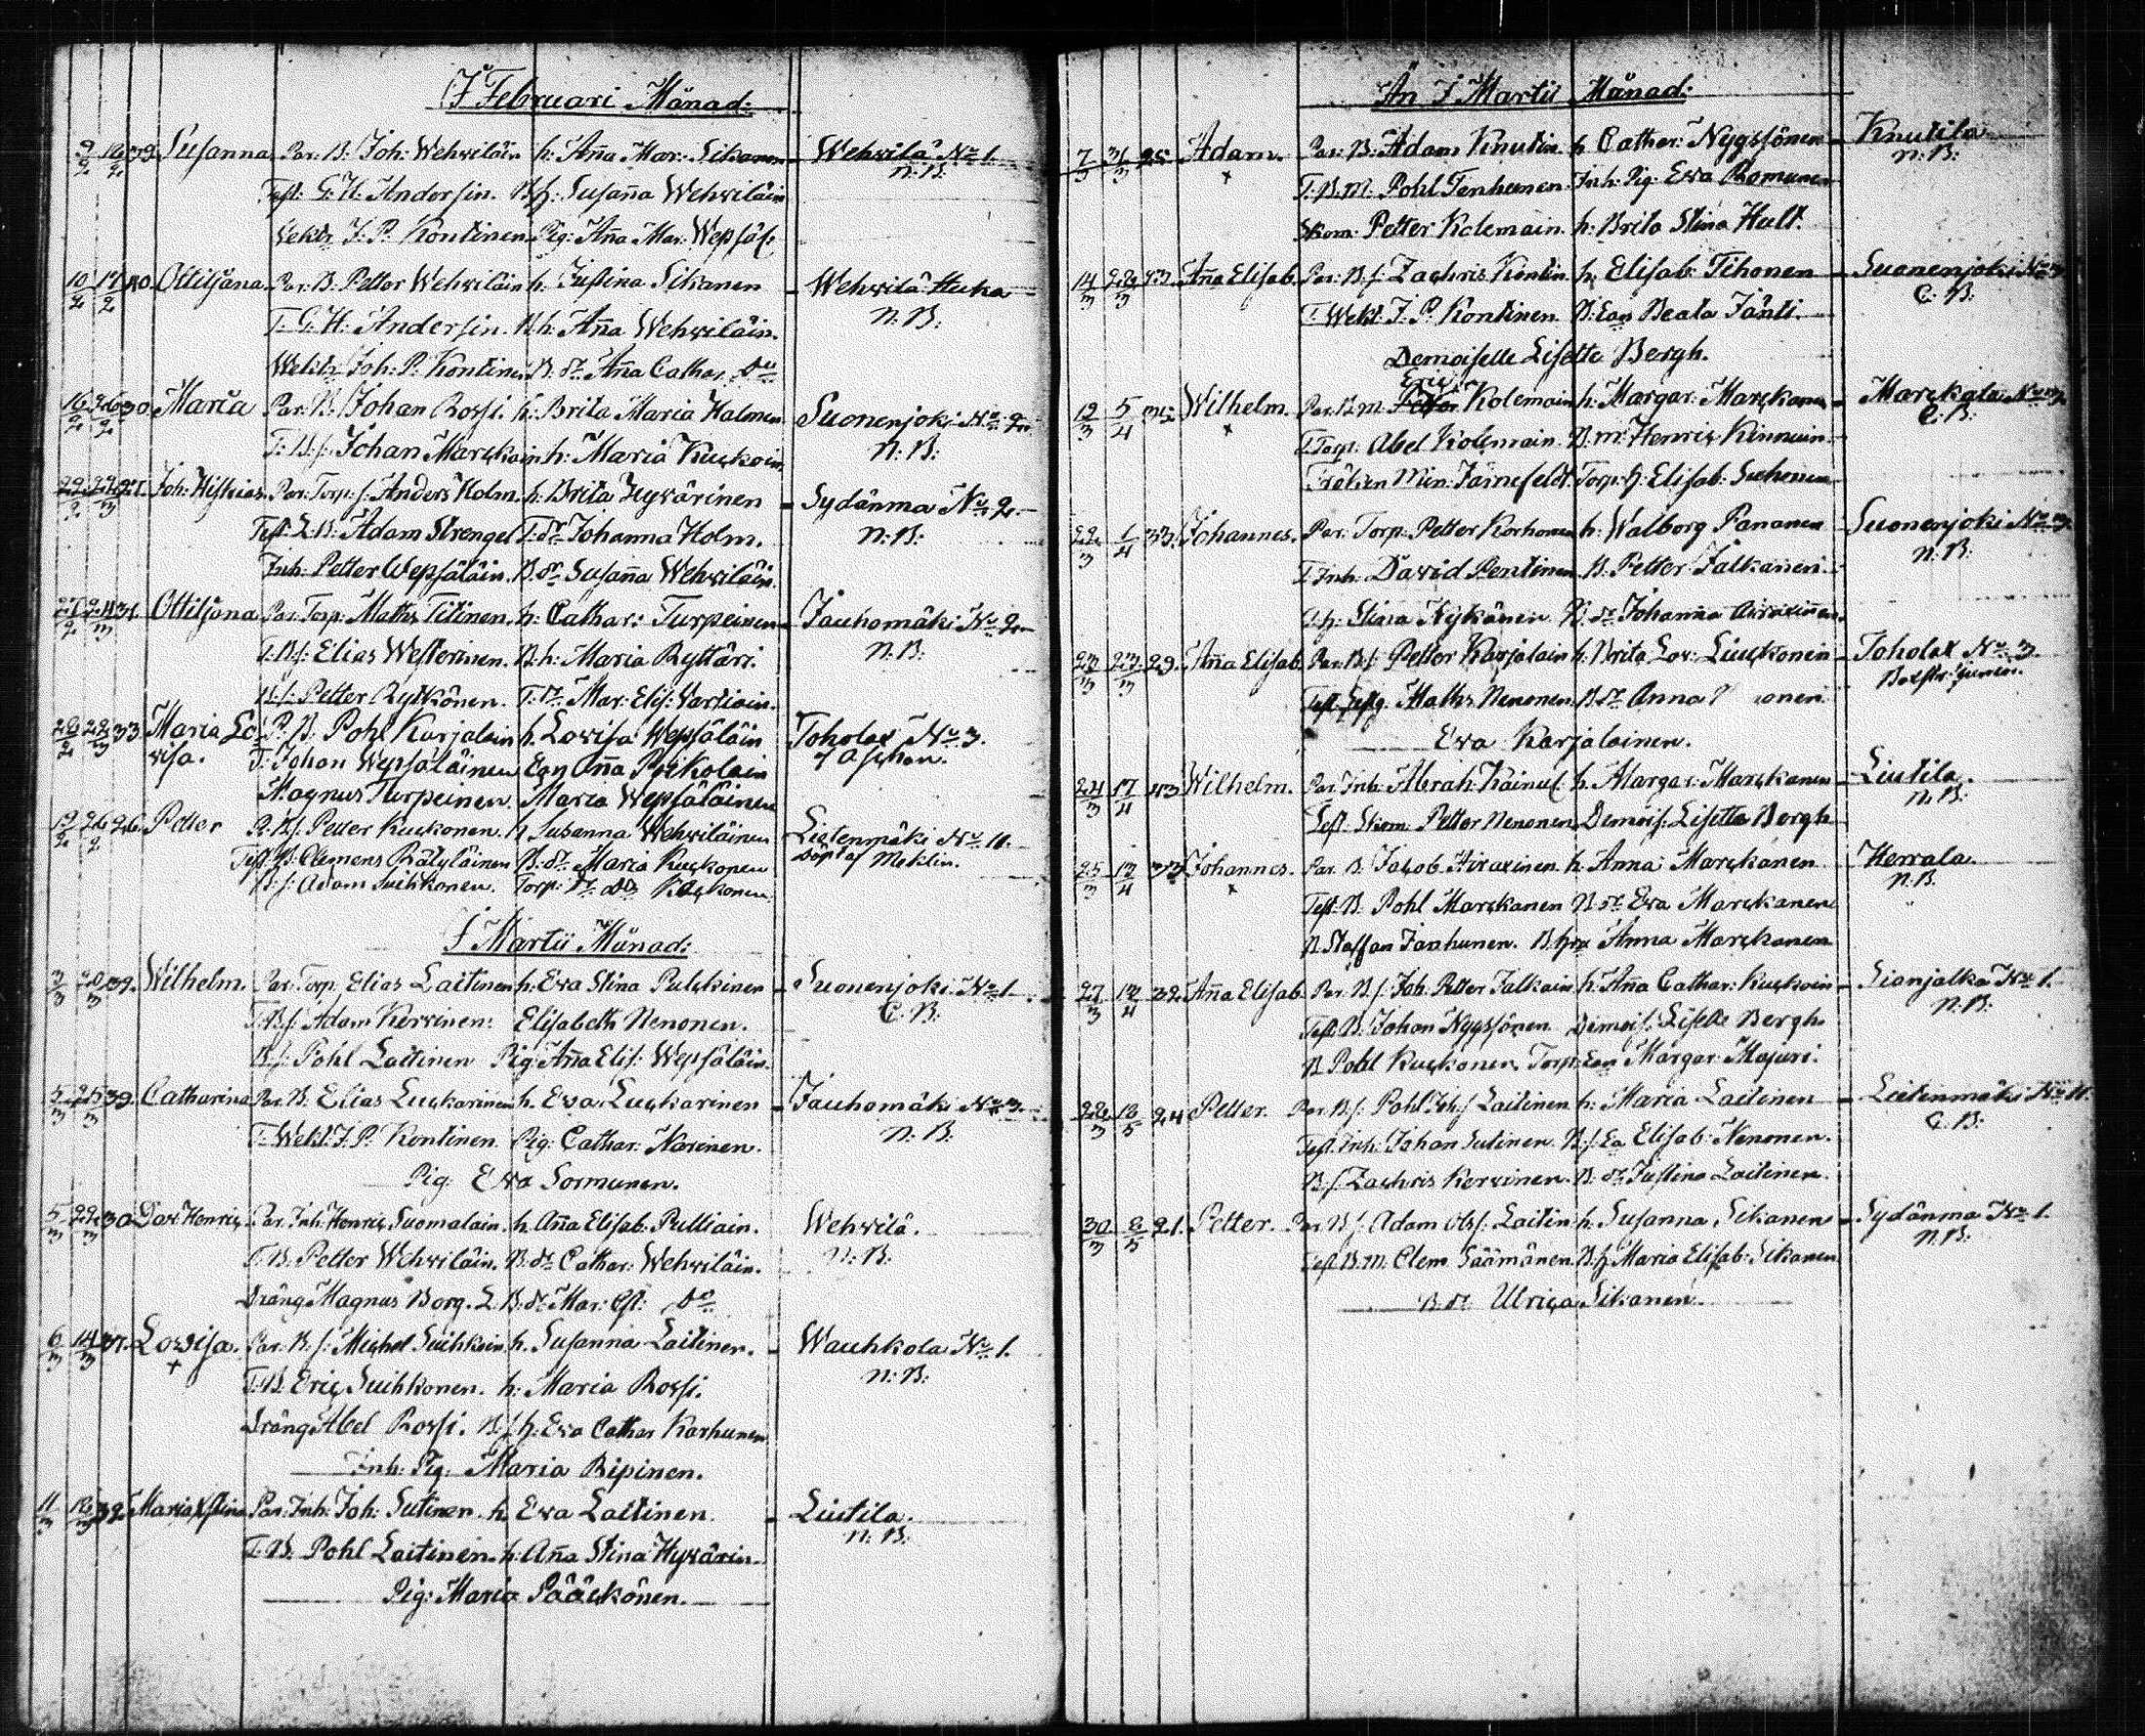 I Februari Månad:
9/2 16/2 39 Susanna Par: B: Joh: Wehviläin h: Aña Mar: Sikanen Wehvilä No 1.
Test: G: H: Andersin. B.h: Susaña Wehviläin n: B:
J: P: Kontinen Pig: Aña Mar: Wepsäl:
10/2 17/2 40 Ottiljana Par: B: Petter Wehviläin h: Justina Sikanen Wehvilä
T: G: H: Andersin. B:h: Aña Wehviläin. n: B:
Joh: P: Kontinen B: dr Aña Cathar. Do
16/2 26/2 30 Maria Par: B: Johan Rossi. h: Brita Maria Halmen Suonenjoki No 2.
T: B: s: Johan Marckain h: Maria Kuckoin n: B:
Joh: Par: Torp: s: Anders Holm. h: Brita Hyvärinen Sydänma No 2.
Test: L: B: Adam Strengel T: dr Johanna Holm. n: B:
Inh: Petter Wepsäläin. B: dr Susaña Wehviläin.
Ottiljana Par: Torp: Maths Titinen. h: Cathar: Turpeinen Jauhomäki No 2.
T: B: s: Elias Westerinen. B: h: Maria Ryttäri. n: B:
B: s: Petter Rytkönen. T: dr Mar: Elis: Vartiain.
33 Maria Lo P: B: Pohl Karjalain h. Lovisa Wepsäläin Toholax No 3.
visa. T: Johan Wepsäläinen Aña Poikolain
Magnus Turpeinen. Maria Wepsäläinen
19/2 26/2 26 Petter P: B: s: Petter Kuckonen. h Susanna Wehviläinen Lietenmäki No 11.
Test: B: Clemens Räbyläinen B: dr Maria Kuckonen Döpt af Meklin.
B: s: Adam Suihkonen. Torp: dr Do Kackonen
I Martii Månad:
3/3 20/3 39. Wilhelm. Par: Torp: Elias Laitinen h: Eva Stina Pulckinen Suonenjoki No 1.
T: B: s: Adam Kervinen: Elisabeth Nenonen. C: B:
B: s: Pohl Laitinen Pig: Aña Elis: Wepsäläin.
5/3 25/3 39. Catharina Par: B: Elias Luckarinen h. Eva Luckarinen Jauhomäki No 3.
T: J: P: Kontinen. Pig: Cathar: Narinen. n: B:
Pig: Eva Sormunen.
5/3 22/3 30 Dav: Henric Par: Inh: Henric Suomalain. h. Aña Elisab. Pulliain. Wehvilä.
T: B: Petter Wehviläin. B: dr Cathar: Wehviläin. n: B:
Dräng Magnus Borg. L: B: dr Mar: Do
6/3 14/3 37. Lovisa. Par: B: s: Michel Suihkoin h. Susanna Laitinen. Wauhkola No 1.
+ T: B: Eric Suihkonen. h: Maria Rossi. n: B:
Dräng Abel Rossi. B: s: h: Eva Cathar Karhunen
Inh: Pig: Maria Ripinen.
11/3 12/3 32 Maria Stina Par: Inh: Joh: Sutinen h. Eva Laitinen. Liutila.
T: B: Pohl Laitinen. h: Aña Stina Hyvärin. n: B:
Pig: Maria Pääckönen.
Än I Martii Månad:
7/3 31/3 25 Adam. Par: B: Adam Knutin h Cathar: Nygssönen Knutila
+ T: B: m: Pohl Tenhunen. Inh: Pig: Eva Romunen n: B:
Skom: Petter Kolemain. h: Brita Stina Hult.
14/3 22/3 43 Aña Elisab. Par: B: s: Zachris Kontin h: Elisab: Tihonen Suonenjoki No 3
T: J: P: Kontinen. B: Beata Jänti. C: B:
Demoiselle Lisette Bergh.
Eric
12/3 5/4 32 Wilhelm. Par: B: m: Petter Kolemain h: Margar: Marckanen Marckala No
+ T: Torp: Abel Kolemain. B: m: Henric Kinnuin. C: B:
Fröken Min: Järnefeldt. Torp: h: Elisab: Suhonen
22/3 1/4 33 Johannes. Par: Torp: Petter Korhonen h: Walborg Pananen Suonenjoki No 3.
T: Inh: David Pentinen B: Petter Jalkanen. n: B:
h: Stina Nykänen B: dr Johanna Airaxinnen
23/3 27/3 29. Aña Elisab. Par: B: s: Petter Karjalain h: Brita Lov: Liuckonen Toholax No 3.
Test: Maths Nenonen. B: dr Anna onen
Eva Karjalainen.
24/3 17/4 43 Wilhelm. Par: Inh: Abrah: Käinul: h. Margar: Marckanen Liutila.
Test: Skom: Petter Nenonen Demois: Lisette Bergh n: B:
25/3 12/4 37 Johannes. Par: B: Jacob Airaxinen h: Anna Marckanen Kerrala.
+ Test: B: Pohl Marckanen B: dr Eva Marckanen n: B.
B Staffan Jauhunen. B: Anna Marckanen
27/3 12/4 32. Aña Elisab. Par: B: s: Joh: Petter Jalkain h: Aña Cathar: Kuckoin Sianjalka No 1.
Test: B: Johan Nygssönen Demois: Lisette Bergh. n: B:
B Pohl Kuckonen. Torp: Margar: Majuri.
24 Petter. Par: B: s: Pohl Joh: s: Laitinen h: Maria Laitinen Lietenmäki No 11.
Test: Inh: Johan Sutinen. B: s: Elisab: Nenonen. C: B:
B: s: Zachris Kervinen. B: dr Justina Laitinen.
30/3 21. Petter. Par: B: s: Adam Ols: s: Laitin h. Susanna Sikanen Sydänma No 1.
Test: B: m: Clem Säämänen B: h: Maria Elisab: Sikanen n: B:
B: dr Ulrica Sikanen.